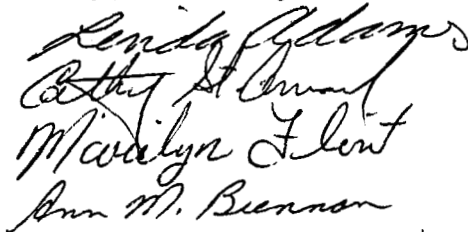 Linda Adams
Cathy St Amand
Marilyn Flint
Ann M. Brennan